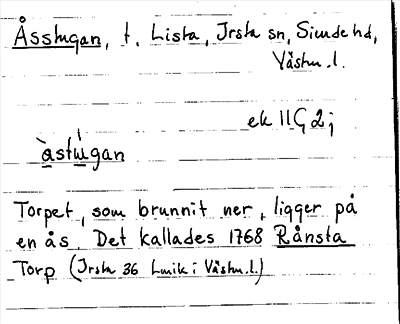 Åsstugan, t. Lista, Irsta sn, Siende hd,
Västm. l.
ek 11G 2j
àstúgan
Torpet, som brunnit ner, ligger på
en ås. Det kallades 1768 Rånsta
Torp (Irsta 36 Lmik i Västm. l.)